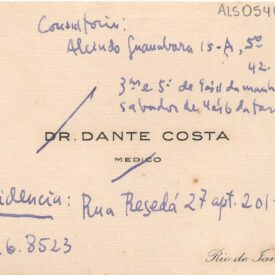 ALS054
Consultorio:
Alcindo Guanabara 15-A, 5º
42.
3as e 5as de 9 às 11 da manh
sabados de 4 às 6 da tar
DR. DANTE COSTA
MEDICO
idencia: Rua Resedá 27 apt. 201
6.8523
Rio de Jan